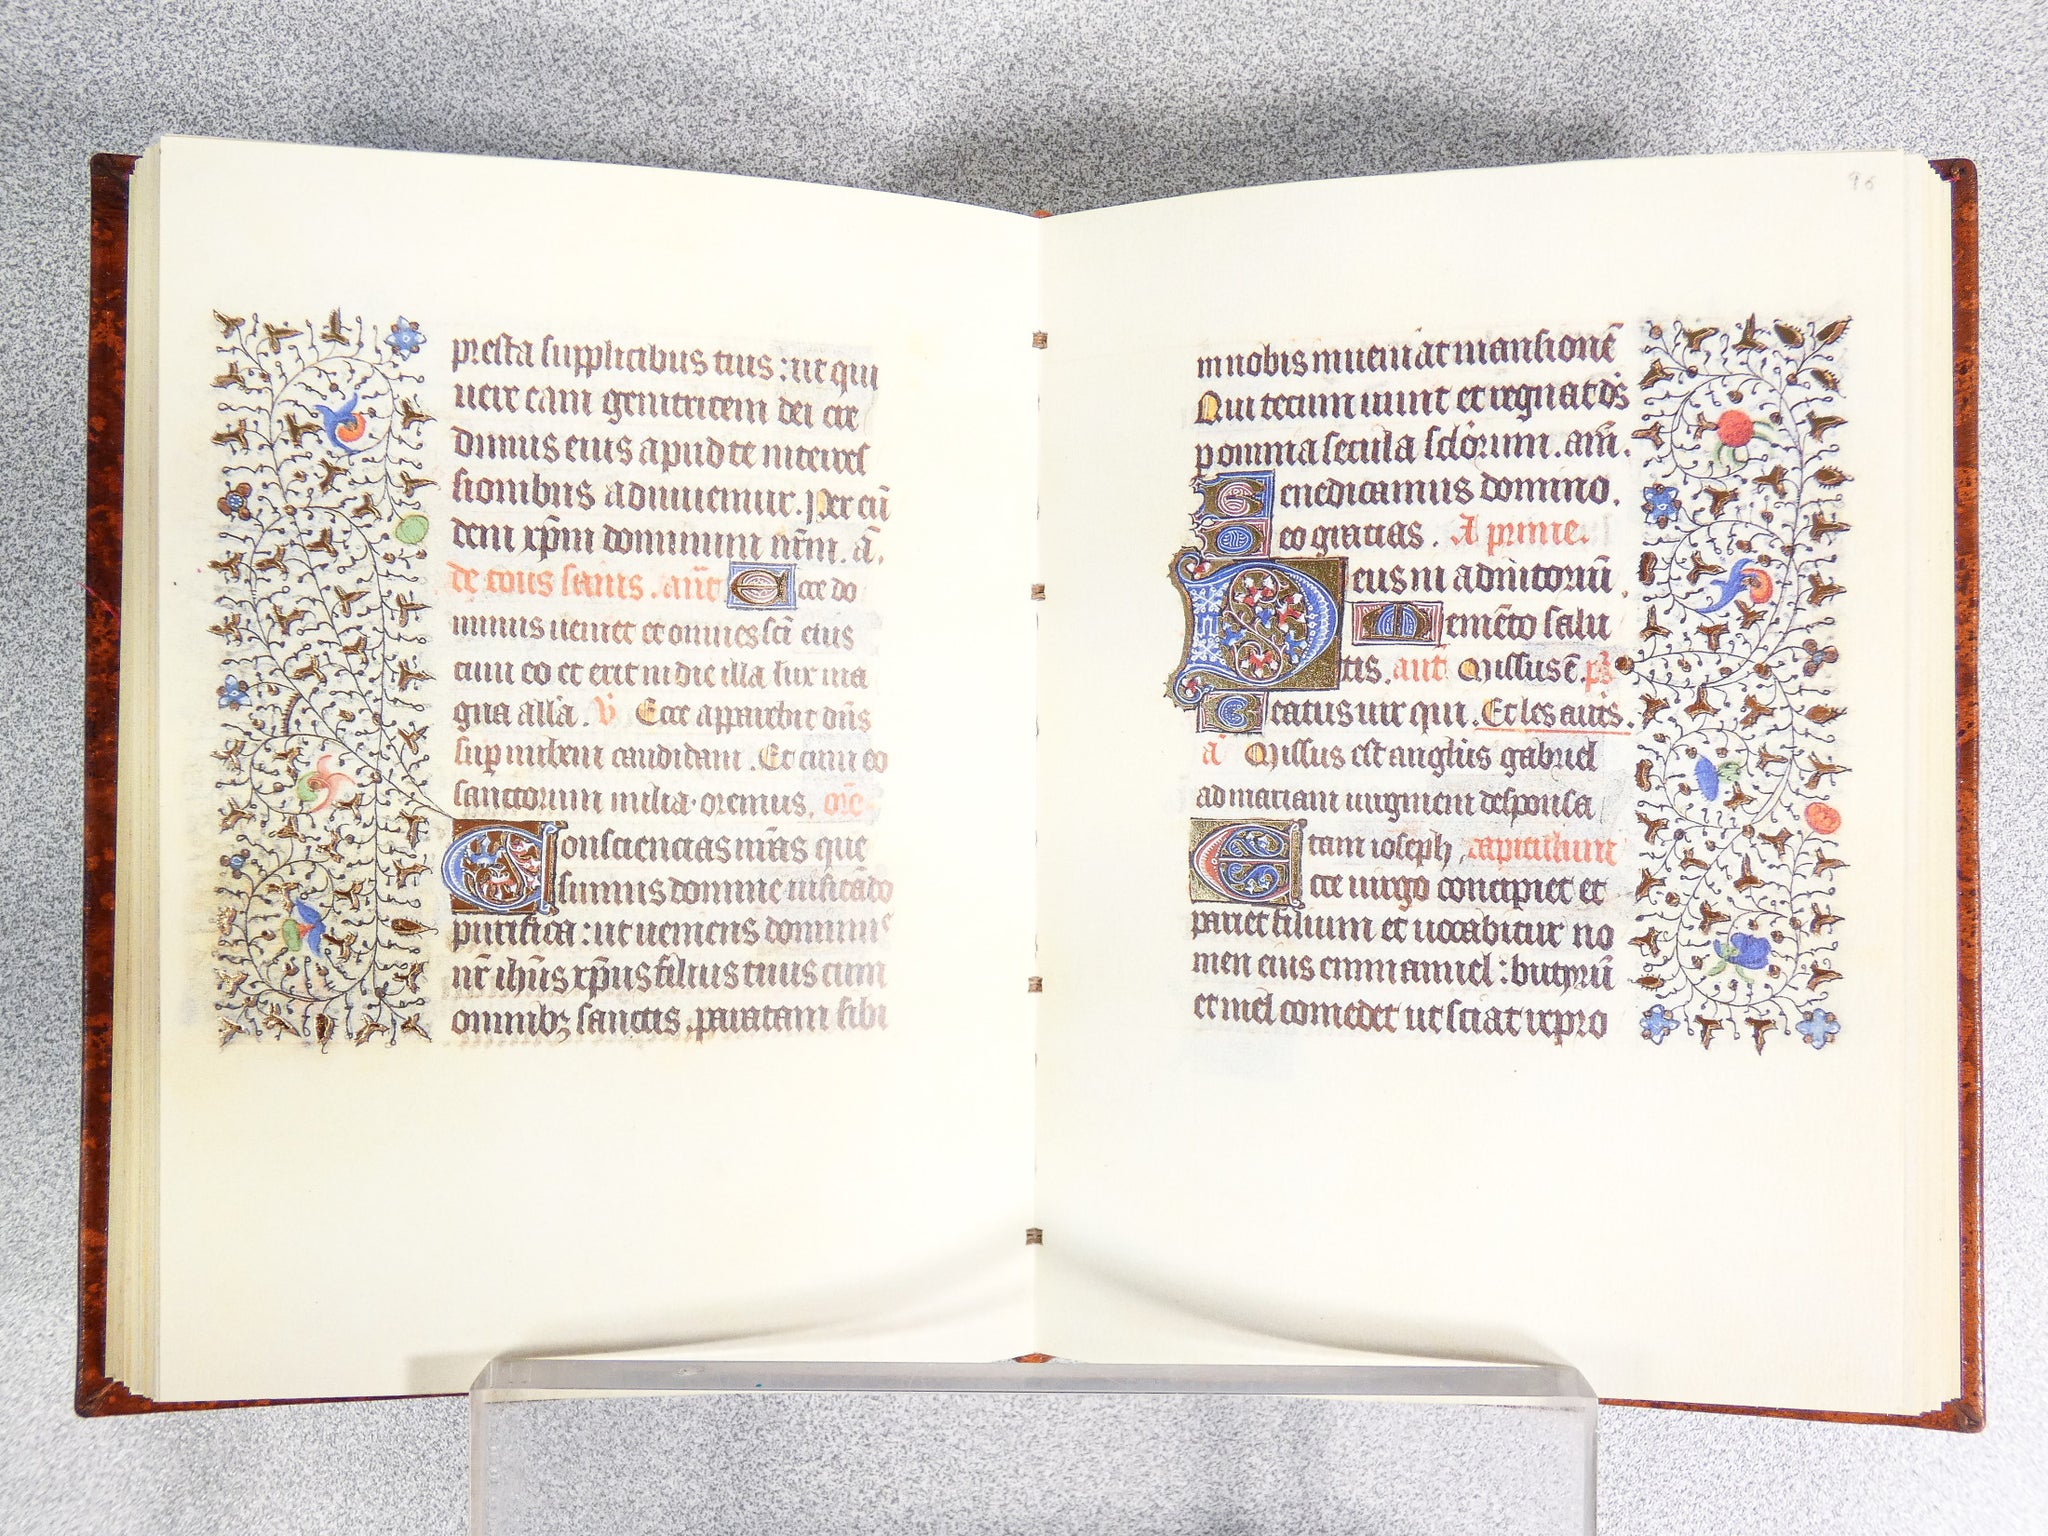 presta supplicibus tuis : ut qui
uere eam genitricem dei cre
dimus eius apud te interces
sionibus adiuuemur. Per eū
dem xp̄m dominum nr̄m. ā.
de tous sains. ant̄ Ecce do
minus ueniet et omnes sc̄i eius
cum eo et erit in die illa lux ma
gna all̄a. v̄ Ecce apparebit dn̄s
sup̄ nubem candidam. Et cum eo
sanctorum milia. oremus. or̄e
Consciencias nr̄as que
sumus domine uisitādo
purifica : ut ueniens dominus
nr̄ ihūs xp̄us filius tuus cum
omnibꝫ sanctis. paratam sibi
96
in nobis inueniat mansionē
Qui tecum uiuit et regnat ds̄
p omnia secula sclōrum. am̄.
Benedicamus domino.
Deo gratias. A prime.
Deus in adiutoriū.
Memēto salu
tis. ant̄ Missus ē. ps̄
Beatus uir qui. Et les autrs̄.
ā Missus est anglūs gabriel
ad mariam uirginem desponsa
tam ioseph. capitulum
Ecce uirgo concipiet et
pariet filium et uocabitur no
men eius emmanuel : butyrū
et mel comedet ut sciat repro